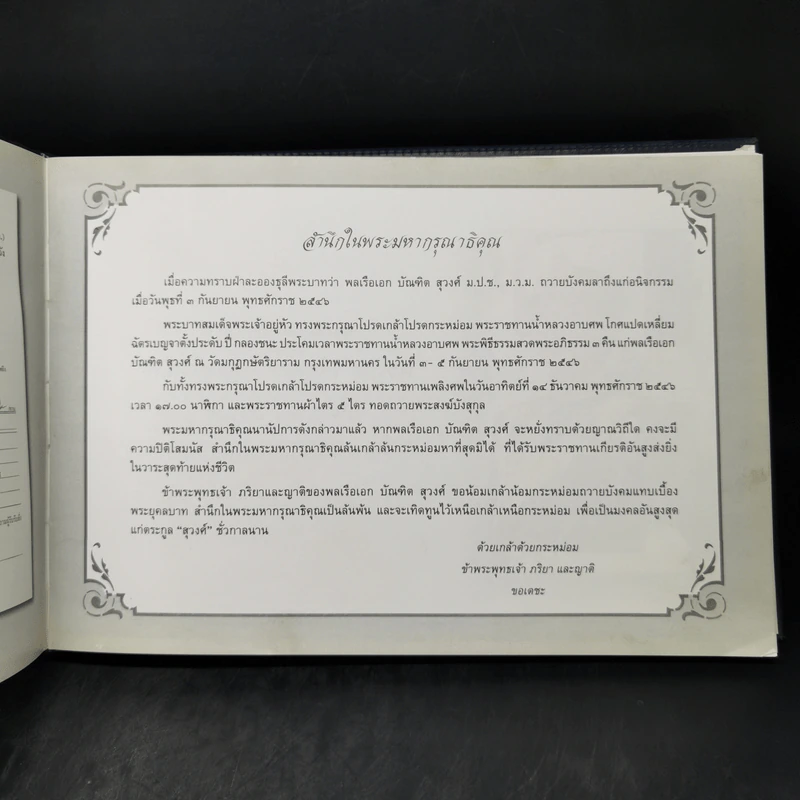 สำนึกในพระมหากรุณาธิคุณ
เมื่อความทราบฝ่าละอองธุลีพระบาทว่า พลเรือเอก บัณฑิต สุวงศ์ ม.ป.ช., ม.ว.ม. ถวายบังคมลาถึงแก่อนิจกรรม
เมื่อวันพุธที่ ๓ กันยายน พุทธศักราช ๒๕๔๖
พระบาทสมเด็จพระเจ้าอยู่หัว ทรงพระกรุณาโปรดเกล้าโปรดกระหม่อม พระราชทานน้ำหลวงอาบศพ โกศแปดเหลี่ยม
ฉัตรเบญจาตั้งประดับ ปี่ กลองชนะ ประโคมเวลาพระราชทานน้ำหลวงอาบศพ พระพิธีธรรมสวดพระอภิธรรม ๓ คืน แก่พลเรือเอก
บัณฑิต สุวงศ์ ณ วัดมกุฎกษัตริยาราม กรุงเทพมหานคร ในวันที่ ๓- ๕ กันยายน พุทธศักราช ๒๕๔๖
กับทั้งทรงพระกรุณาโปรดเกล้าโปรดกระหม่อม พระราชทานเพลิงศพในวันอาทิตย์ที่ ๑๔ ธันวาคม พุทธศักราช ๒๕๔๖
เวลา ๑๗.๐๐ นาฬิกา และพระราชทานผ้าไตร ๕ ไตร ทอดถวายพระสงฆ์บังสุกุล
พระมหากรุณาธิคุณนานัปการดังกล่าวมาแล้ว หากพลเรือเอก บัณฑิต สุวงศ์ จะหยั่งทราบด้วยญาณวิถีใด คงจะมี
ความปิติโสมนัส สำนึกในพระมหากรุณาธิคุณล้นเกล้าล้นกระหม่อมหาที่สุดมิได้ ที่ได้รับพระราชทานเกียรติอันสูงส่งยิ่ง
ในวาระสุดท้ายแห่งชีวิต
ข้าพระพุทธเจ้า ภริยาและญาติของพลเรือเอก บัณฑิต สุวงศ์ ขอน้อมเกล้าน้อมกระหม่อมถวายบังคมแทบเบื้อง
พระยุคลบาท สำนึกในพระมหากรุณาธิคุณเป็นล้นพ้น และจะเทิดทูนไว้เหนือเกล้าเหนือกระหม่อม เพื่อเป็นมงคลอันสูงสุด
แก่ตระกูล "สุวงศ์" ชั่วกาลนาน
ด้วยเกล้าด้วยกระหม่อม
ข้าพระพุทธเจ้า ภริยา และญาติ
ขอเดชะ